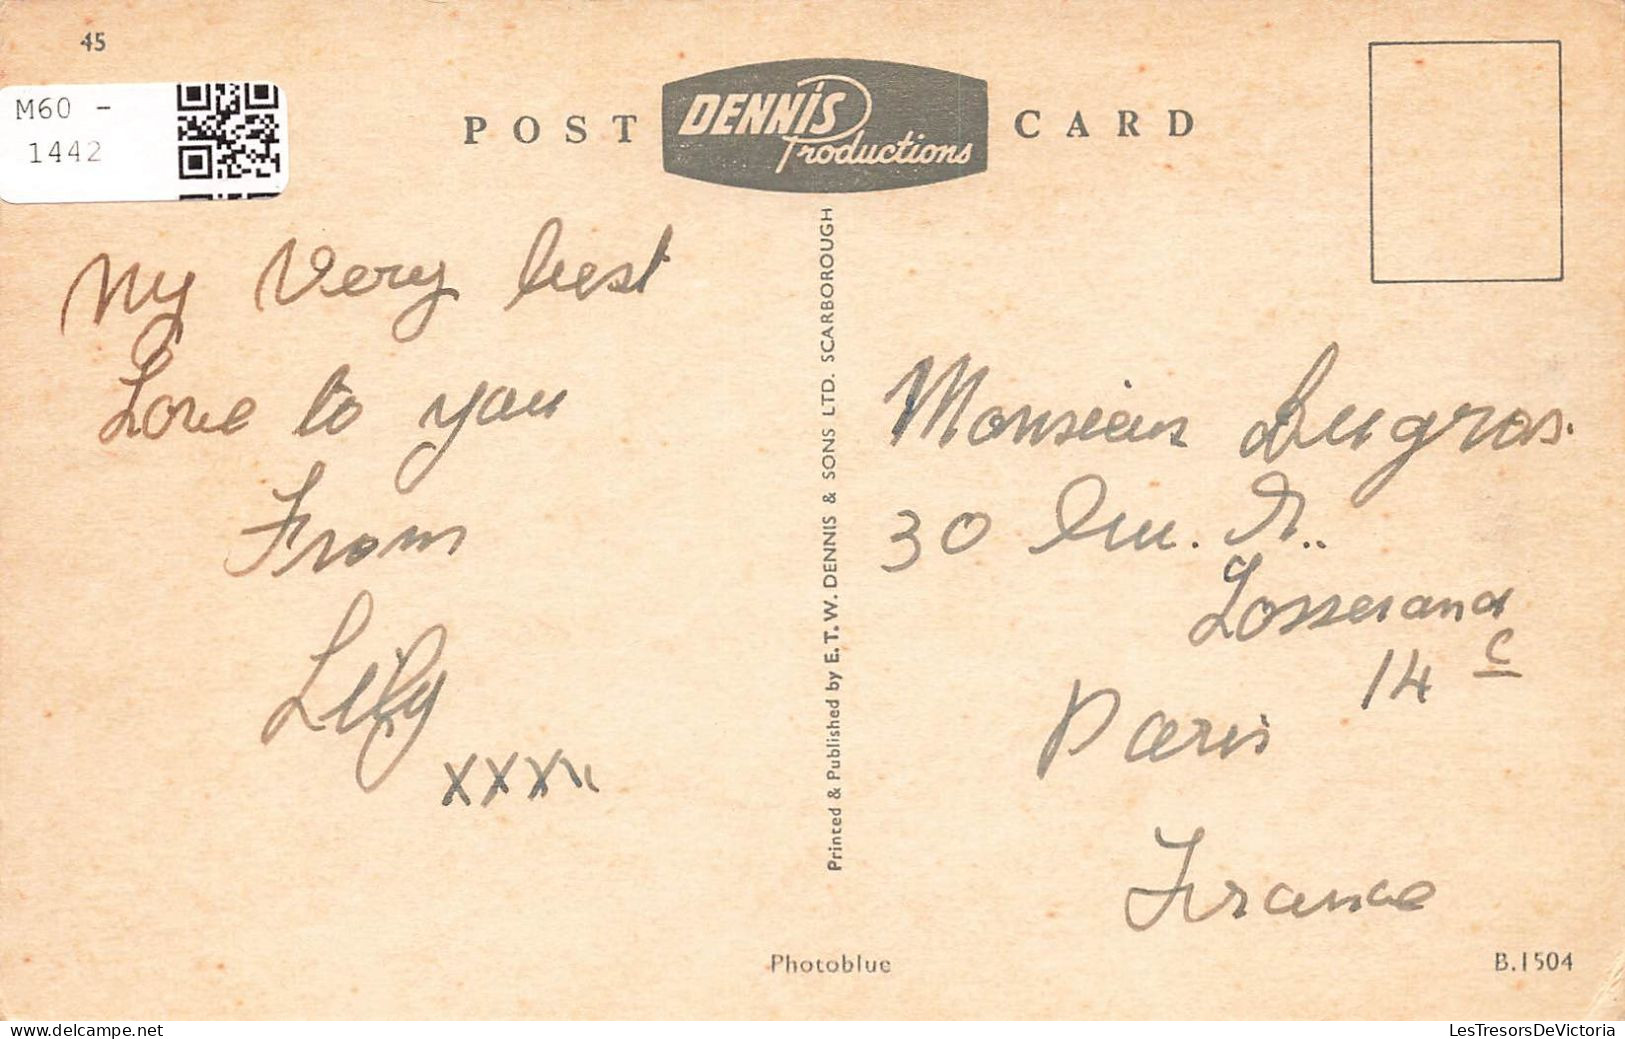 45
M60 -
1442
POST DENNIS Productions CARD
My Very best
Love to you
From
Lily
xxxx
Printed & Published by E. T. W. DENNIS & SONS LTD. SCARBOROUGH
Monsieur Dugros.
30 R..
Losserand
14 e
Paris
France
Photoblue
B.1504
LesTresorsDeVictoria